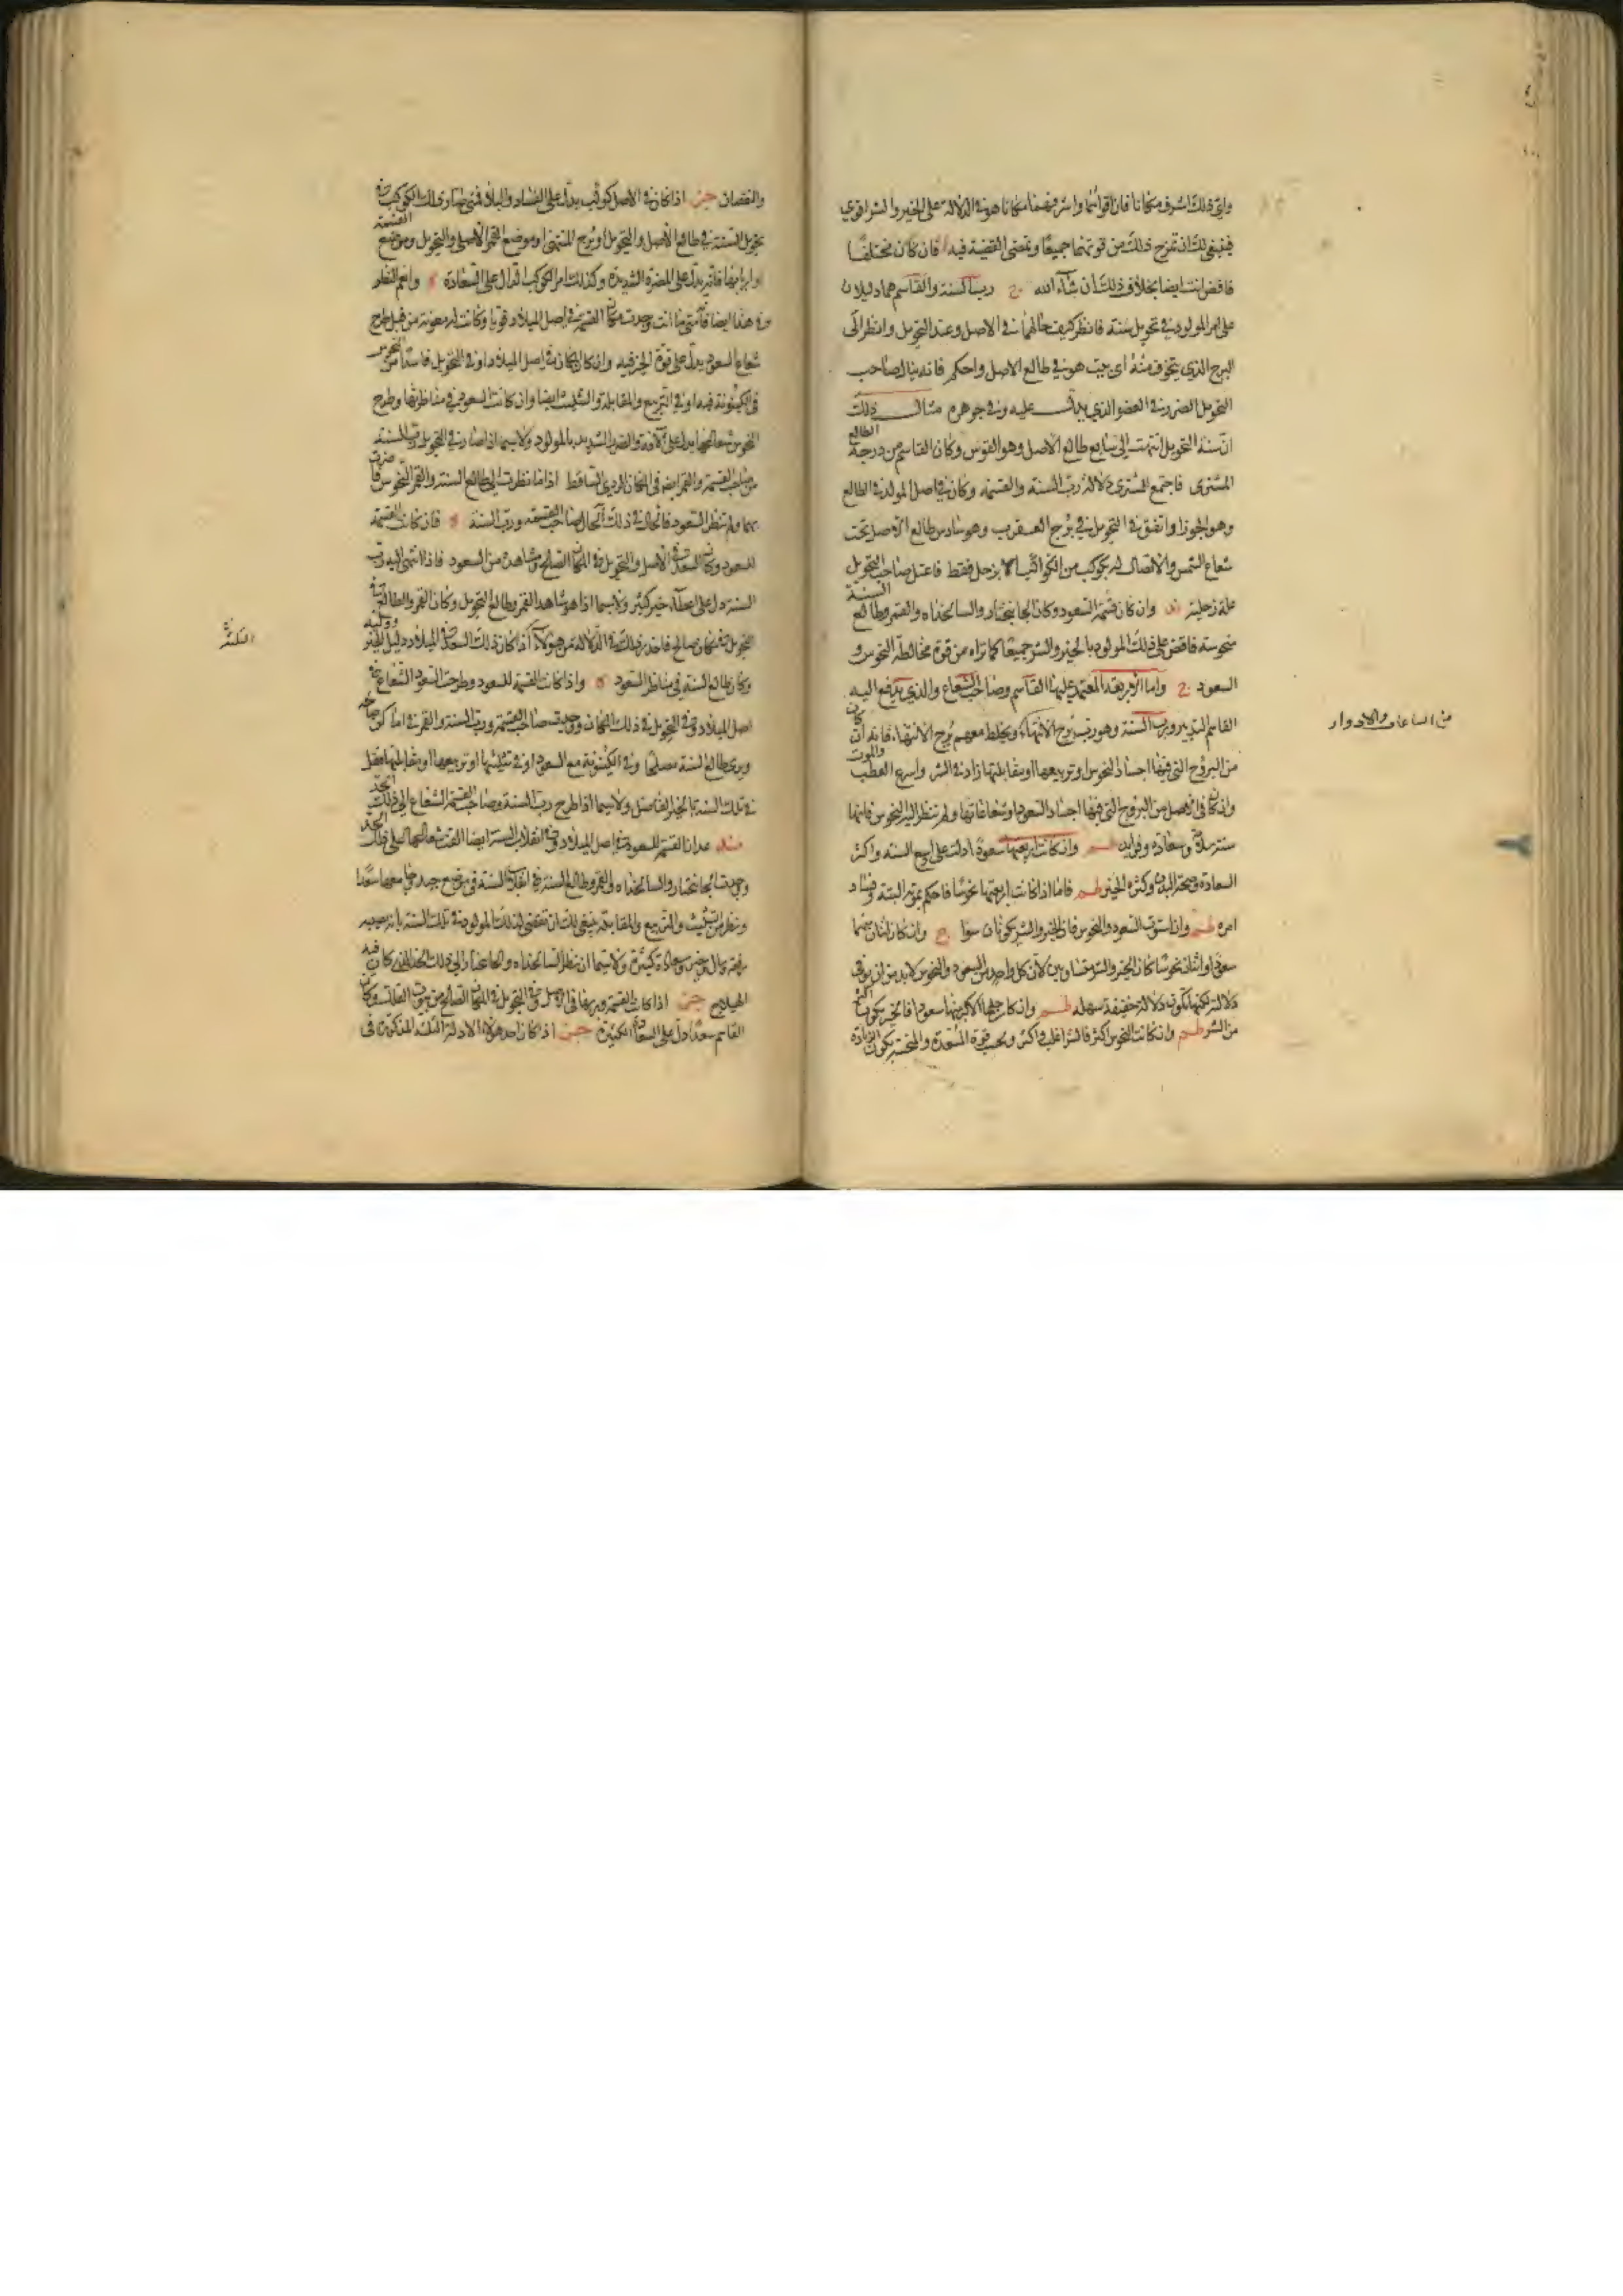 واي ذلك اشرف مكانا فان اقوائهما واشرفهما مكانا هو في الدلالة على الخير والشر اقوى
فينبغي لك ان تمزج ذلك من قوتهما جميعًا وتمضى القضية فيه فان كان مختلفًا
فاقض انت ايضا بخلاف ذلك ان شاء الله ح رب السنة والقاسم هما دليلان
على امر المولود في تحويل سنة فانظر كيف حالهما في الاصل وعند التحويل وانظر الى
البرج الذي يتخوف منه اي بيت هو في طالع الاصل واحكم فانه ينال صاحب
التحويل الضرر في العضو الذي يدل عليه وفي جوهره مثال ذلك
ان سنة التحويل انتهت الى سابع طالع الاصل وهو القوس وكان القاسم من درجة الطالع
المشترى فاجتمع للمشترى دلالة رب السنة والقسمة وكان في اصل المولد في الطالع
وهو الجوزا واتفق في التحويل في برج العقرب وهو سادس طالع الاصل تحت
شعاع الشمس ولا اتصال له بكوكب من الكواكب الا بزحل فقط فاعتل صاحب التحويل
علة زحلية وان كان قسمة السعود وكان الجانبختار والسالخداه والقمر وطالع السنة
منحوسة فاقض على ذلك المولود بالخير والشر جميعًا كما تراه من قوة مخالطة النحوس و
السعود ح واما الاربعة المعتمد عليها القاسم وصاحب الشعاع والذي يدفع اليه
القاسم التدبير ورب السنة وهو رب برج الانتهاء ويخلط معهم برج الانتهاء فانه ان كان
من البروج التي فيها اجساد النحوس او تربيعها او مقابلتها زاد في الشر واسرع العطب والموت
وان كان في الاصل من البروج التي فيها اجساد السعود او شعاعاتها ولم تنظر اليه النحوس فانها
سنة سلامة وسعادة وفوايد وان كانت اربعتها سعودًا دلت على اربع السنة واكثر
السعادة وصحة البدن وكثرة الخير فاما اذا كانت اربعتها نحوسًا فاحكم بموته البتة وفساد
امره وان استوت السعود والنحوس فان الخير والشر يكونان سوا ح وان كان اثنان منهما
سعودًا واثنان نحوسًا كان الخير والشر متساويين لان كل واحد من السعود والنحوس لا بد من ان يوفى
دلالته لكنها تكون دلالة خفيفة سهلة وان كان رجحها الاكثر منها سعودًا فالخير يكون اكثر
من الشر وان كانت النحوس اكثر فالشر اغلب واكثر وبحسب قوة المسعدة والمنحسة يكون الزيادة
من الساعات والادوار
والنقصان اذا كان في الاصل كوكب يدل على الفساد والبلاء فمتى صار ذلك الكوكب في
تحويل السنة في طالع الاصل والتحويل او برج المنتهى او موضع القمر الاصلي والتحويل وموضع القسمة
او اربابها فانه يدل على المضرة الشديدة وكذلك امر الكوكب الدال على السعادة وانعم النظر
في هذا ايضا فانه متى ما انت وجدت مكان القسمة في اصل الميلاد قويا وكانت له معونة من قبل طرح
شعاع السعود يدل على قوة الخير فيه وان كان المكان في اصل الميلاد او في التحويل فاسدًا من النحوس
في الكينونة فيه او في التربيع والمقابلة والتثليث ايضا وان كانت السعود في مناظرتها وطرح
النحوس شعاعها يدل على الآفة والضرر الشديد بالمولود ولا سيما اذا صار في التحويل رب السنة
من صاحب القسمة والقمر ايضا في المكان الردي الساقط اذا ما نظرت الى طالع السنة والقمر النحوس
بهما ولم تنظر السعود فالحال في ذلك كحال صاحب القسمة ورب السنة فان كانت القسمة
للسعود وكان السعد في الاصل والتحويل في المكان الصالح ومشاهدة من السعود فاذا انتهى اليه رب
السنة دل على اصابة خير كثير ولا سيما اذا هو شاهد القمر وطالع التحويل وكان القمر والطالع في
التحويل في مكان صالح
وكان طالع السنة في مناظر السعود واذا كانت القسمة للسعود وطرحت السعود الشعاع في
اصل الميلاد وفي التحويل في ذلك المكان ووجدت صاحب القسمة ورب السنة والقمر في اماكن صالحة
ويرى طالع السنة مصلحًا وفي الكينونة مع السعود او في تثليثها او تربيعها او مقابلتها فقل
في تلك السنة بالخير الفاضل ولا سيما اذا طرح رب السنة وصاحب القسمة الشعاع الى ذلك الحد
القسمة للسعود في اصل الميلاد وفي انقلاب السنة ايضا القت شعاعها على ذلك الحد
وجدت الجانبختار والسالخداه والقمر وطالع السنة في انقلاب السنة في موضع جيد
ونظر من التثليث والتربيع والمقابلة ينبغي لك ان تقضي لذلك المولود في تلك السنة بانه يصيبه
رفعة ومال وخير وسعادة كثيرة ولا سيما ان نظر السالخداه والجانبختار الى ذلك الحد الذي كان فيه
الهيلاج اذا كانت القسمة وربها في الاصل وفي التحويل في المكان الصالح من بيوت الفلك وكان
القاسم سعدًا دل على السعادة الكثيرة اذا كان احد هؤلاء الادلة الثلثة المذكورة في
الثلثة